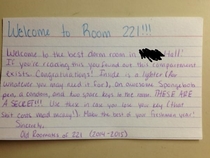 Welcome to Room 221!!!
Welcome to the best dorm room in hall!
If you're reading this you found out this compartment
exists. Congratulations! Inside is a lighter (for
whatever you may need it for), an awesome Spongebob
pen, a condom, and two spare keys to the room. THESE ARE
A SECRET!!! Use them in case you lose your key (that
cost money). Make the best of your freshman year!
Sincerely,
Old Roommates of 221 (2014-2015)